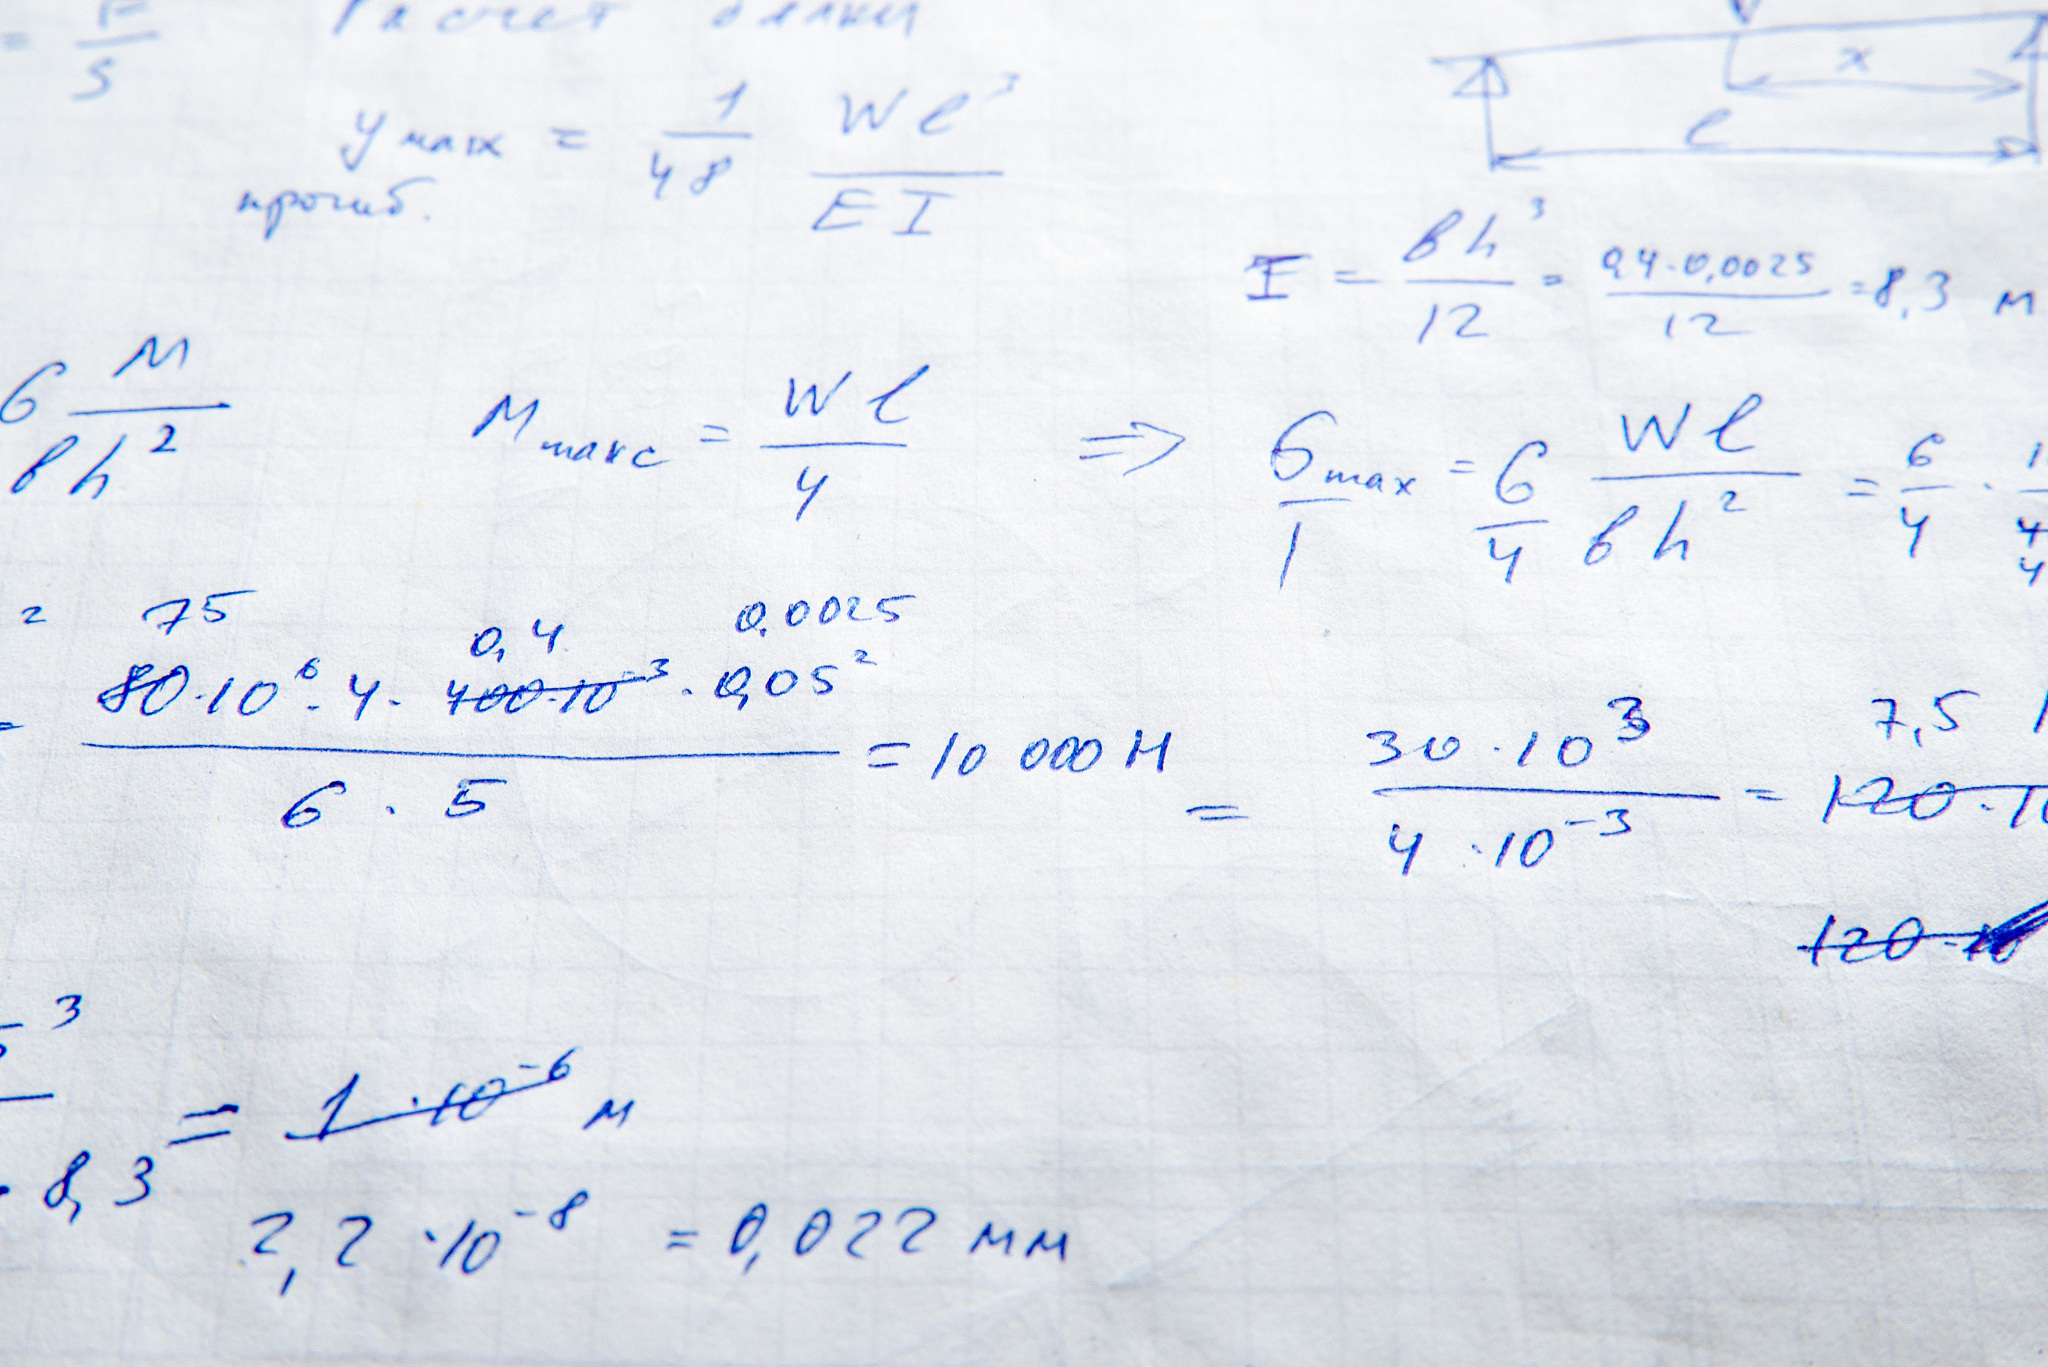 = F/S Расчет балки
y max = 1/48 Wl³/EI
прогиб.
x
l
I = bh³/12 = 0,4·0,0025/12 = 8,3 м
6 M/bh² M макс = Wl/4 ⇒ σmax/1 = 6/4 Wl/bh² = 6/4 ·
2 75 0,4 0,0025
= 80·10⁶·4·400·10⁻³·0,05² / 6·5 = 10 000 Н
= 30·10³/4·10⁻³ = 7,5
120·10
120·10
3
· 8,3 = 1·10⁻⁶ м
2,2·10⁻⁸ = 0,022 мм